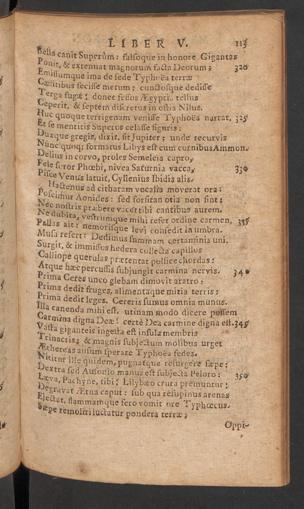 LIBER V. 115
Bella canit Superûm: falsoque in honore Gigantas
Ponit, & extenuat magnorum facta Deorum; 320
Emissumque ima de sede Typhoëa terræ
Cælitibus fecisse metum; cunctosque dedisse
Terga fugæ; donec fessos Ægyptia tellus
Ceperit, & septem discretus in ostia Nilus.
Huc quoque terrigenam venisse Typhoëa narrat, 325
Et se mentitis Superos celasse figuris:
Duxque gregis, dixit, fit Jupiter: unde recurvis
Nunc quoque formatus Libys est cum cornibus Ammon.
Delius in corvo, proles Semeleia capro,
Fele soror Phœbi, nivea Saturnia vacca, 330
Pisce Venus latuit, Cyllenius Ibidis alis.
Hactenus ad citharam vocalia moverat ora:
Poscimur Aonides: sed forsitan otia non sint;
Nec nostris præbere vacet tibi cantibus aurem.
Ne dubita, vestrumque mihi refer ordine carmen, 335
Pallas ait: nemorisque levi consedit in umbra.
Musa refert: Dedimus summam certaminis uni.
Surgit, & immissos hedera collecta capillos
Calliope querulas prætentat pollice chordas:
Atque hæc percussis subjungit carmina nervis. 340
Prima Ceres unco glebam dimovit aratro;
Prima dedit fruges, alimentaque mitia terris;
Prima dedit leges. Cereris sumus omnia munus.
Illa canenda mihi est. utinam modo dicere possem
Carmina digna Dea! certè Dea carmine digna est. 345
Vasta giganteis ingesta est insula membris
Trinacris; & magnis subjectum molibus urget
Æthereas ausum sperare Typhoëa sedes.
Nititur ille quidem, pugnatque resurgere sæpe:
Dextra sed Ausonio manus est subjecta Peloro: 350
Læva, Pachyne, tibi; Lilybæo crura premuntur;
Degravat Ætna caput: sub qua resupinus arenas
Ejectat, flammamque fero vomit ore Typhœus.
Sæpe remoliri luctatur pondera terræ;
Oppi-